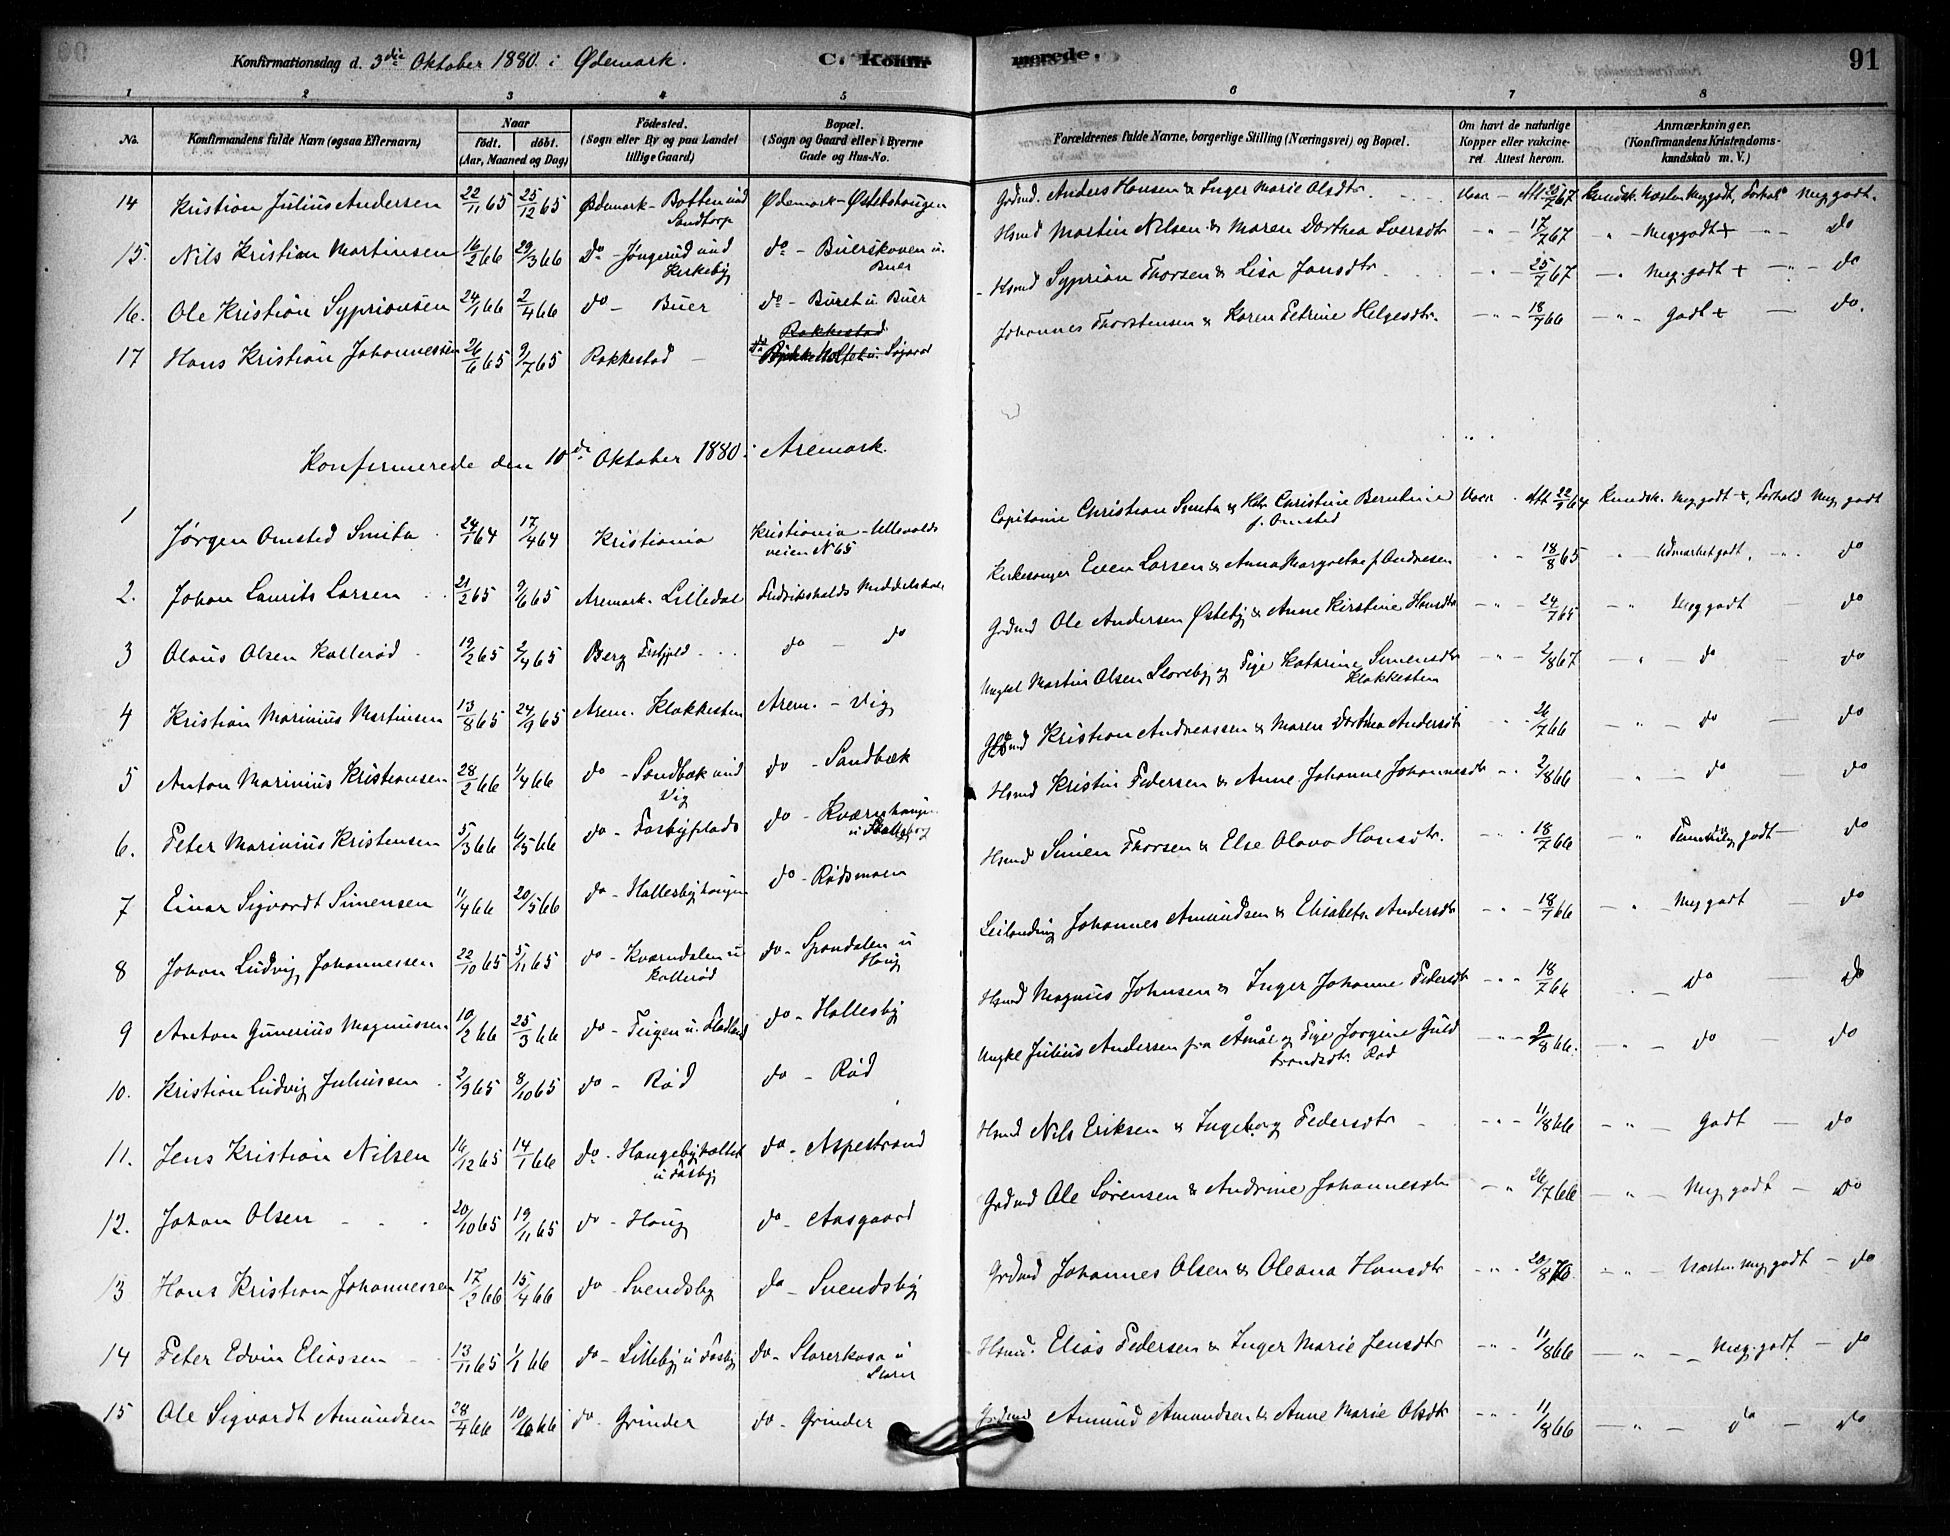 Konfirmationsdag d. 3die Oktober 1880 i Ødemark.
C. Konfir
merede.
91
1 2 3 4 5 6 7 8
No.
Konfirmandens fulde Navn (ogsaa Efternavn)
Naar
født. døbt.
(Aar, Maaned og Dag)
Fødested.
(Sogn eller By og paa Landet tillige Gaard)
Bopæl.
(Sogn og Gaard eller i Byerne Gade og Hus-No.
Forældrenes fulde Navne, borgerlige Stilling (Næringsvei) og Bopæl.
Om havt de naturlige Kopper eller vakcineret. Attest herom.
Anmærkninger.
(Konfirmandens Kristendomskundskab m. V.)
14 Kristian Julius Andersen 22/11 65 25/12 65 Ødemark - Botten und Sandtorp Ødemark - Østebshaugen Grdmd. Anders Hansen & Inger Marie Olsdtr. Vacc. Att 67 Kundsk. Næsten Meg godt, Forhold Meg godt.
15. Nils Kristian Martinsen 16/2 66 29/3 66 Do - Jøngerud und Kirkeby do - Buerskoven u. Buer Hsmd Martin Nilsen & Maren Dorthea Iversdtr - " - 17/7 67 - " - Meg godt + - " - Do
16. Ole Kristian Syprionsen 24/1 66 2/4 66 do - Buer do - Buret u. Buer Hsmd Syprian Thorsen & Lisa Jansdtr - " - 25/7 67 - " - Meg. godt + - " - do
17 Hans Kristian Johannessen 26/6 65 9/7 65 Rakkestad - Rakkestad do Johannes Thorstensen & Karen Petrine Helgesdtr. - " - 18/7 66 - " - Godt + - do.
Konfirmerede den 10de Oktober 1880 i Aremark.
1 Jørgen Omsted Smith 24/1 64 17/4 64 Kristiania Kristiania - Ullevoldsveien N 65 Capitaine Christian Smith & Christine Berntine f. Omsted Vacc. Att 22/9 64 Kundsk. Meg godt +, Forhold Meg godt
2. Johan Laurits Larsen 21/2 65 9/6 65 Aremark - Lilledal Fredrikshalds Middelskole Kirkesanger Even Larsen & Anna Margrethe f. Andresen " " 18/8 65 - " Udmærket godt, - " - do
3 Olaus Olsen Kallerød 19/2 65 2/4 65 Berg do - do Grdmd Ole Andersen Østeby & Anne Kirstine Hansdtr - " - 24/7 65 - " Meg godt - do
4 Kristian Marinius Martinsen 13/8 65 24/9 65 Arem. Klokkesten Arem. - Vig Ungkl Martin Olsen Storeby og Pige Kathrine Simensdtr Klokkesten - " - 2/8 67 - " - do - do
5 Anton Marinius Kristiansen 28/2 66 1/4 66 do - Sandbæk und Vig do - Sandbæk Kristian Andreassen & Maren Dorthea Andersdtr " " 26/7 66 - " - do - do
6. Peter Marinius Kristensen 5/3 66 6/5 66 do - Fosbyplads do - Hsmd Kristin Pedersen & Anne Johanne Johannesdtr - " - 2/8 66 - " - do - do
7 Einar Sigvardt Simensen 11/4 66 20/5 66 do - Hallesbyhaugen do - Rødsmoen Hsmd Simen Thorsen & Else Olava Hansdtr. - " - 18/7 66 - " godt - do
8 Johan Ludvig Johannessen 22/10 65 5/11 65 do - Kværndalen u Kallerød do - Spondalen u Houg Leilending Johannes Amundsen & Elisabeth Andersdtr - " - 18/7 66 - " - Meg godt - do
9 Anton Gunerius Magnussen 10/2 66 25/3 66 do - Teigen u. Fladland do - Hallesby Hsmd Magnus Johnsen & Inger Johanne Pedersdtr - " - 18/7 66 - do - Do
10. Kristian Ludvig Juliussen 2/9 65 8/10 65 do - Rød do - Rød Ungkl Julius Andersen fra Åmål og Pige Jørgine Guldbrandsdtr. Rød - " - 9/8 66. - " - do - do
11. Jens Kristian Nilsen 16/12 65 14/1 66 do - Haugebyholtet u Fosby do - Aspestrand Hsmd Nils Eriksen & Ingeborg Pedersdtr - " - 11/8 66 - " - Godt - do
12. Johan Olsen 20/10 65 19/11 65 do - Houg do - Aasgaard Grdmd Ole Sørensen & Andrine Johannesdtr - " 26/7 66 - " - Meg. godt - do
13 Hans Kristian Johannessen 17/2 66 15/4 66 do - Svendsby do - Svendsby Grdmd Johannes Olsen & Oleana Hansdtr - " - 20/8 70. " " Næsten meg godt - do
14 Peter Edvin Eliassen 13/11 65 1/1 66 do - Lilleby u Fosby do - Slorerkasa u Slorer Hsmd. Elias Pedersen & Inger Marie Jensdtr - " - 11/8 66 - " - Meg. godt - do
15 Ole Sigvardt Amundsen 28/4 66 10/6 66 do - Grinder do - Grinder Grdmd Amund Amundsen & Anne Marie Olsdtr - " - 11/8 66 - " - do - do